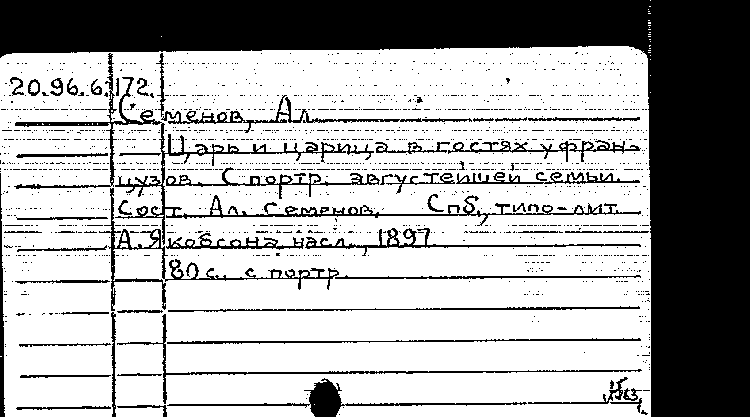 20.96.6.172.
Семенов, Ал.
Царь и царица в гостях у фран-
цузов. С портр. августейшей семьи.
Сост. Ал. Семенов. Спб., типо-лит.
А. Якобсона насл., 1897.
80 с., с портр.